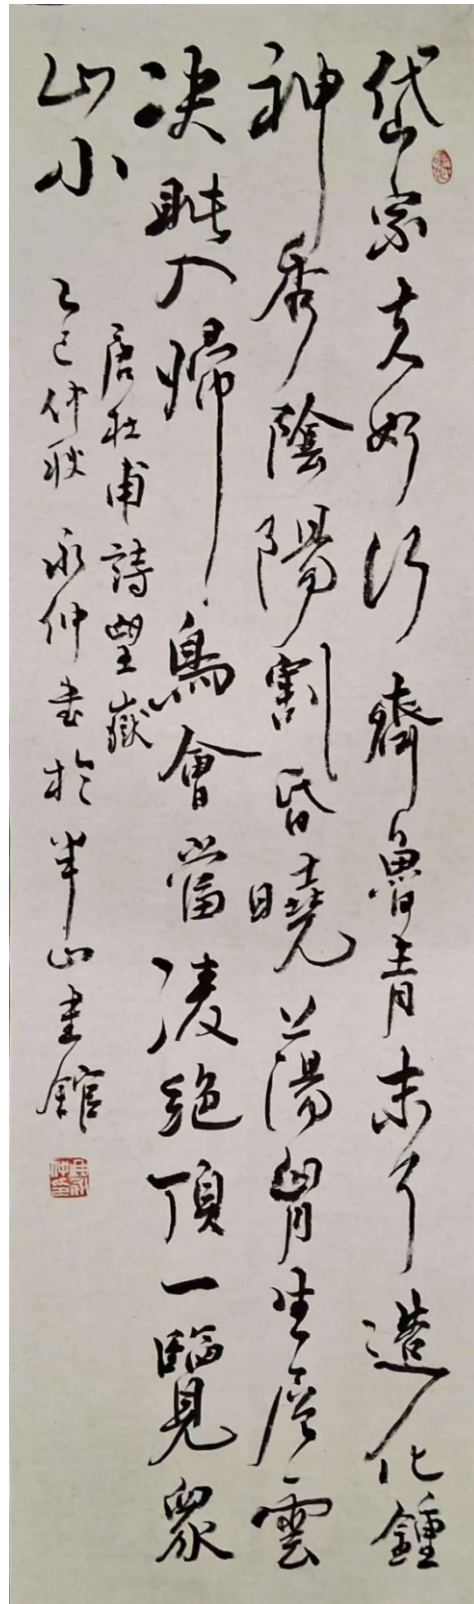 岱宗夫如何齊魯青未了造化鍾
神秀陰陽割昏曉蕩胷生層雲
决眦入歸鳥會當凌絕頂一覽眾
山小
唐杜甫詩望嶽
乙巳仲秋永仲書於半山書館